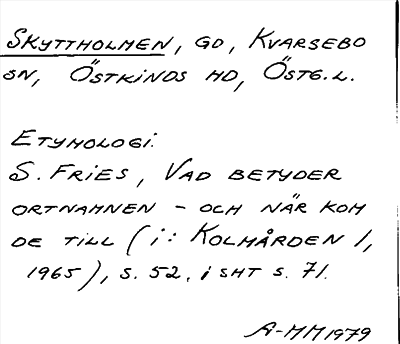 SKYTTHOLMEN, GD, KVARSEBO
SN, ÖSTKINDS HD, ÖSTG.L.
ETYMOLOGI:
S. FRIES, VAD BETYDER
ORTNAMNEN - OCH NÄR KOM
DE TILL (i: KOLMÅRDEN 1,
1965), S. 52, i SHT S. 71.
A-MM 1979